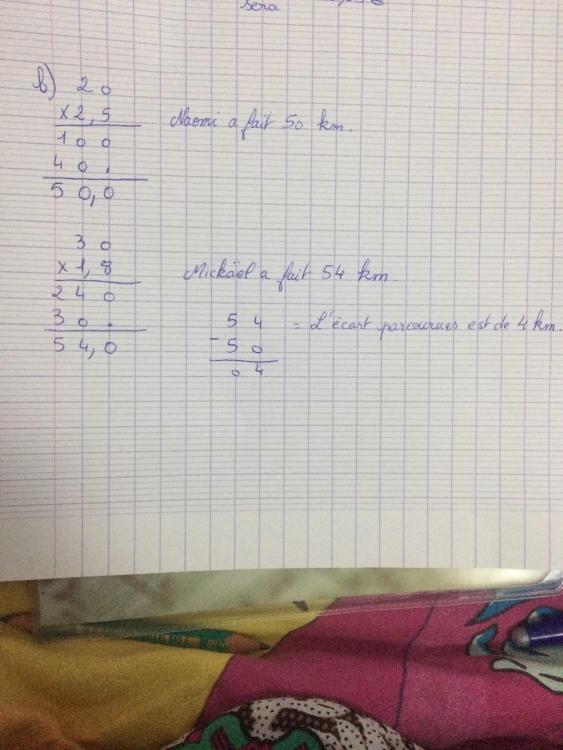 sera
b) 20
x 2,5
100
40.
50,0
Naomi a fait 50 km.
30
x 1,8
240
30.
54,0
Mickäel a fait 54 km.
54
- 50
04
= L'écart parcourues est de 4 km.